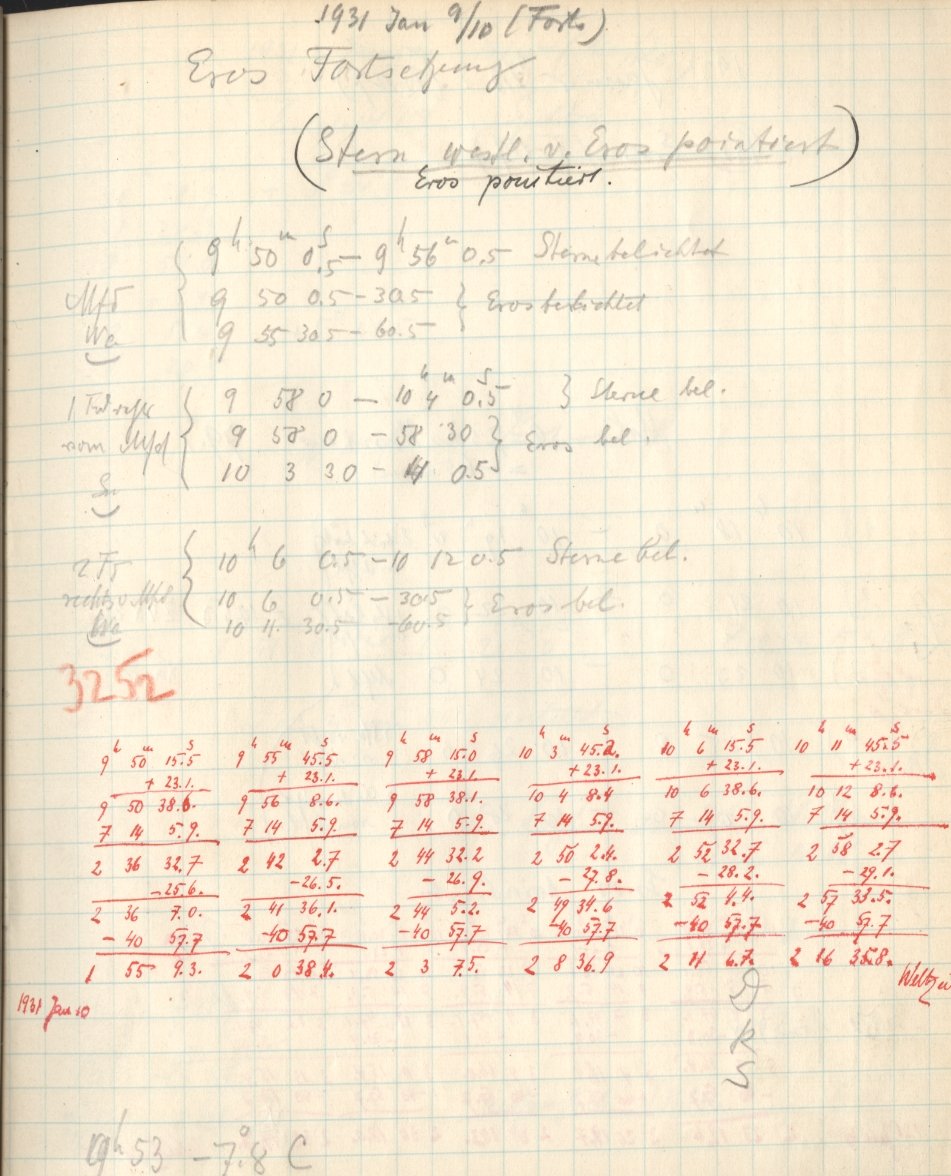 1931 Jan 9/10 (Forts)
Eros Fortsetzung
(Stern westl. v. Eros pointiert)
Eros pointiert.
9 h 50 m 0.5 s – 9 h 56 m 0.5 Sterne belichtet
9 50 0.5 – 30.5 } Eros belichtet
Wa 9 55 30.5 – 60.5
9 58 0 – 10 h 4 m 0.5 s } Sterne bel.
vom 9 58 0 – 58 30 } Eros bel.
10 3 30 – 4 0.5
10 h 6 0.5 – 10 12 0.5 Sterne bel.
rechts 10 6 0.5 – 30.5 } Eros bel.
Wa 10 11 30.5 – 60.5
3252
9 h 50 m 15.5 s 9 h 55 m 45.5 s 9 h 58 m 15.0 s 10 h 3 m 45.2 s 10 h 6 m 15.5 s 10 h 11 m 45.5 s
+ 23.1 + 23.1. + 23.1 + 23.1. + 23.1. + 23.1.
9 50 38.6. 9 56 8.6. 9 58 38.1. 10 4 8.4 10 6 38.6. 10 12 8.6.
7 14 5.9. 7 14 5.9. 7 14 5.9. 7 14 5.9. 7 14 5.9. 7 14 5.9.
2 36 32.7 2 42 2.7 2 44 32.2 2 50 2.4. 2 52 32.7 2 58 2.7
– 25.6. – 26.5. – 26.9. – 27.8. – 28.2. – 29.1.
2 36 7.0. 2 41 36.1. 2 44 5.2. 2 49 34.6 2 52 4.4. 2 57 33.5.
– 40 57.7 – 40 57.7 – 40 57.7 – 40 57.7 – 40 57.7 – 40 57.7
1 55 9.3. 2 0 38.4. 2 3 7.5. 2 8 36.9 2 11 6.7. 2 16 35.8. Weltzei
1931 Jan 10
h 53 – 7.°8 C